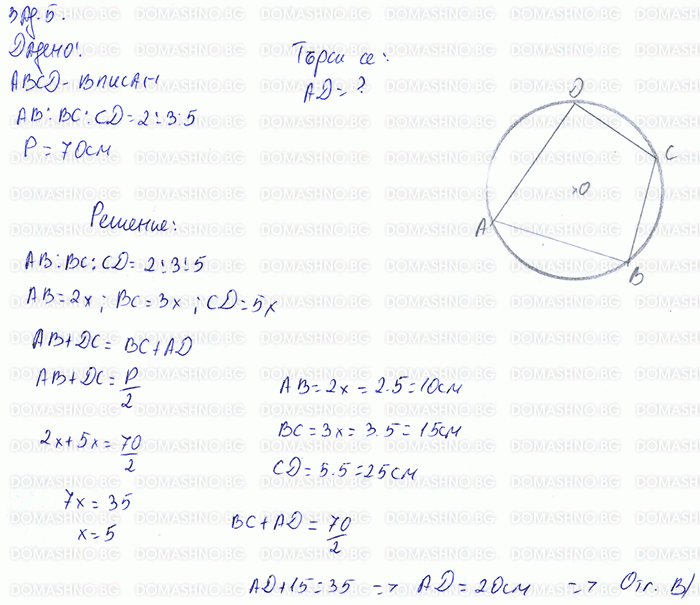 Зад. 5.
Дадено:
ABCD - вписан
AB:BC:CD = 2:3:5
P = 70см
Търси се:
AD = ?
D
C
O
A
B
Решение:
AB:BC:CD = 2:3:5
AB = 2x ; BC = 3x ; CD = 5x
AB + DC = BC + AD
AB + DC = P/2
2x + 5x = 70/2
7x = 35
x = 5
AB = 2x = 2.5 = 10см
BC = 3x = 3.5 = 15см
CD = 5.5 = 25см
BC + AD = 70/2
AD + 15 = 35 => AD = 20см => Отг. В/
DOMASHNO.BG